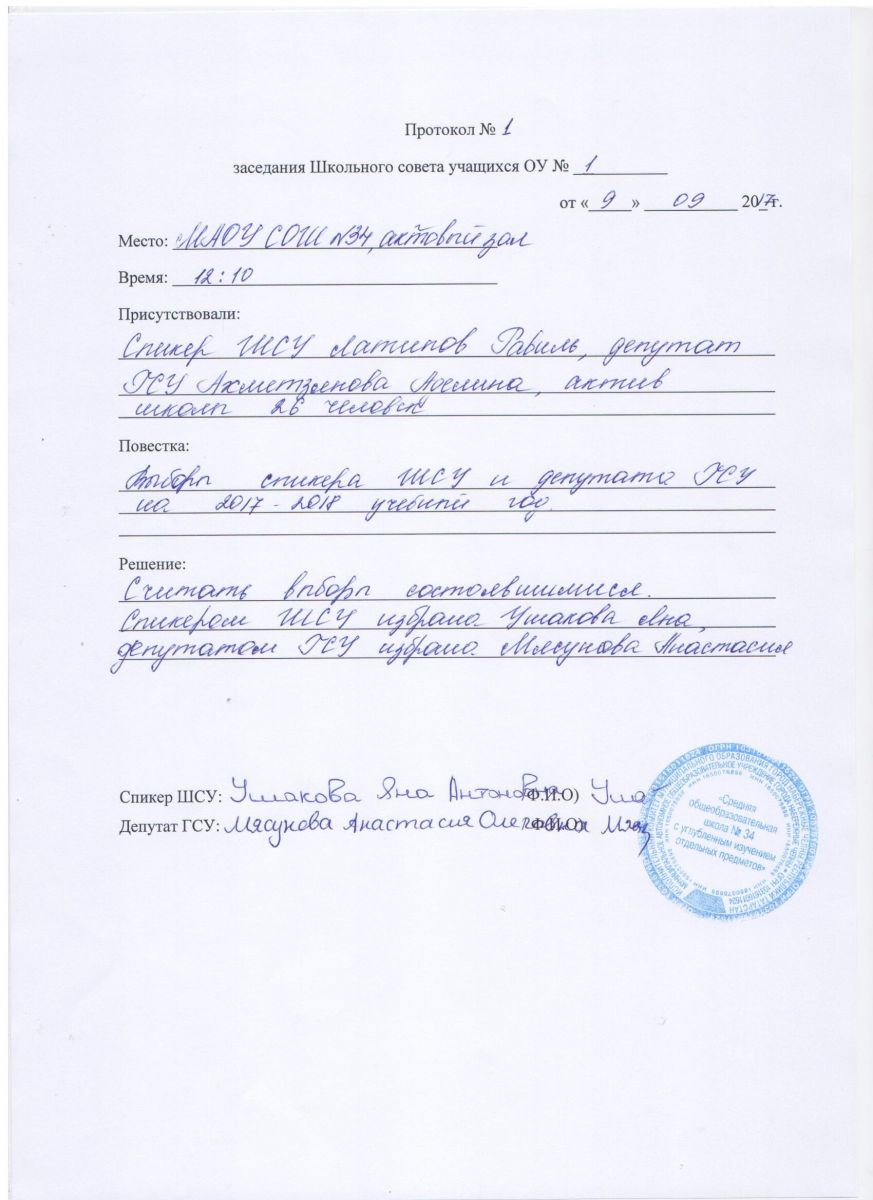 Протокол № 1
заседания Школьного совета учащихся ОУ № 1
от «9» 09 2017г.
Место: МАОУ СОШ №34, актовый зал
Время: 12:10
Присутствовали:
Спикер ШСУ Латипов Равиль, депутат
ГСУ Ахметзянова Аделина, актив
школы 26 человек
Повестка:
Выборы спикера ШСУ и депутата ГСУ
на 2017-2018 учебный год.
Решение:
Считать выборы состоявшимися.
Спикером ШСУ избрана Ушакова Яна,
депутатом ГСУ избрана Мясунова Анастасия
Спикер ШСУ: Ушакова Яна Антоновна Ф.И.О)
Депутат ГСУ: Мясунова Анастасия Олеговна (Ф.И.О)
«Средняя
общеобразовательная
школа № 34
с углубленным изучением
отдельных предметов»